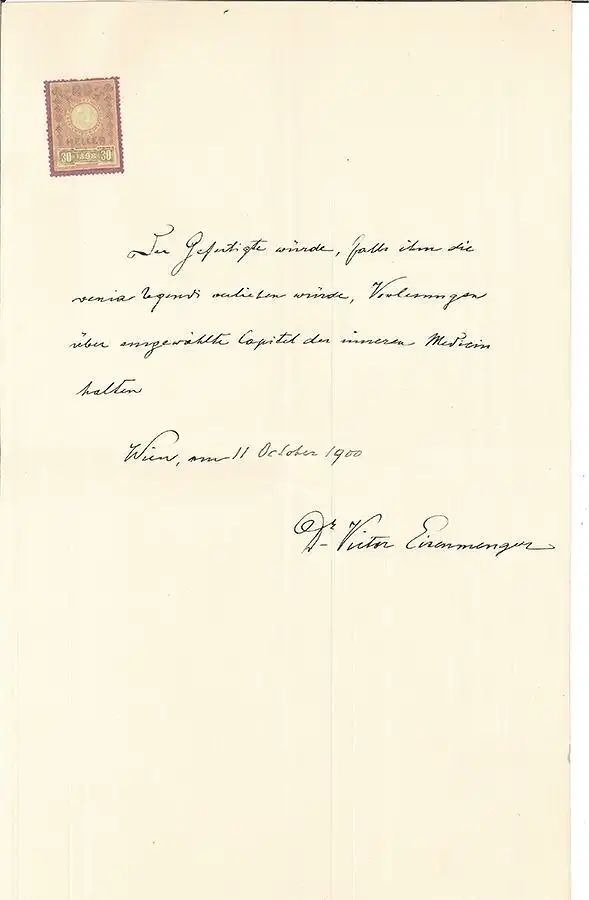 HELLER
30 1898 30
Der Gefertigte würde, falls ihm die
venia legendi verliehen würde, Vorlesungen
über ausgewählte Capitel der inneren Medicin
halten
Wien, am 11 October 1900
Dr Victor Eisenmenger